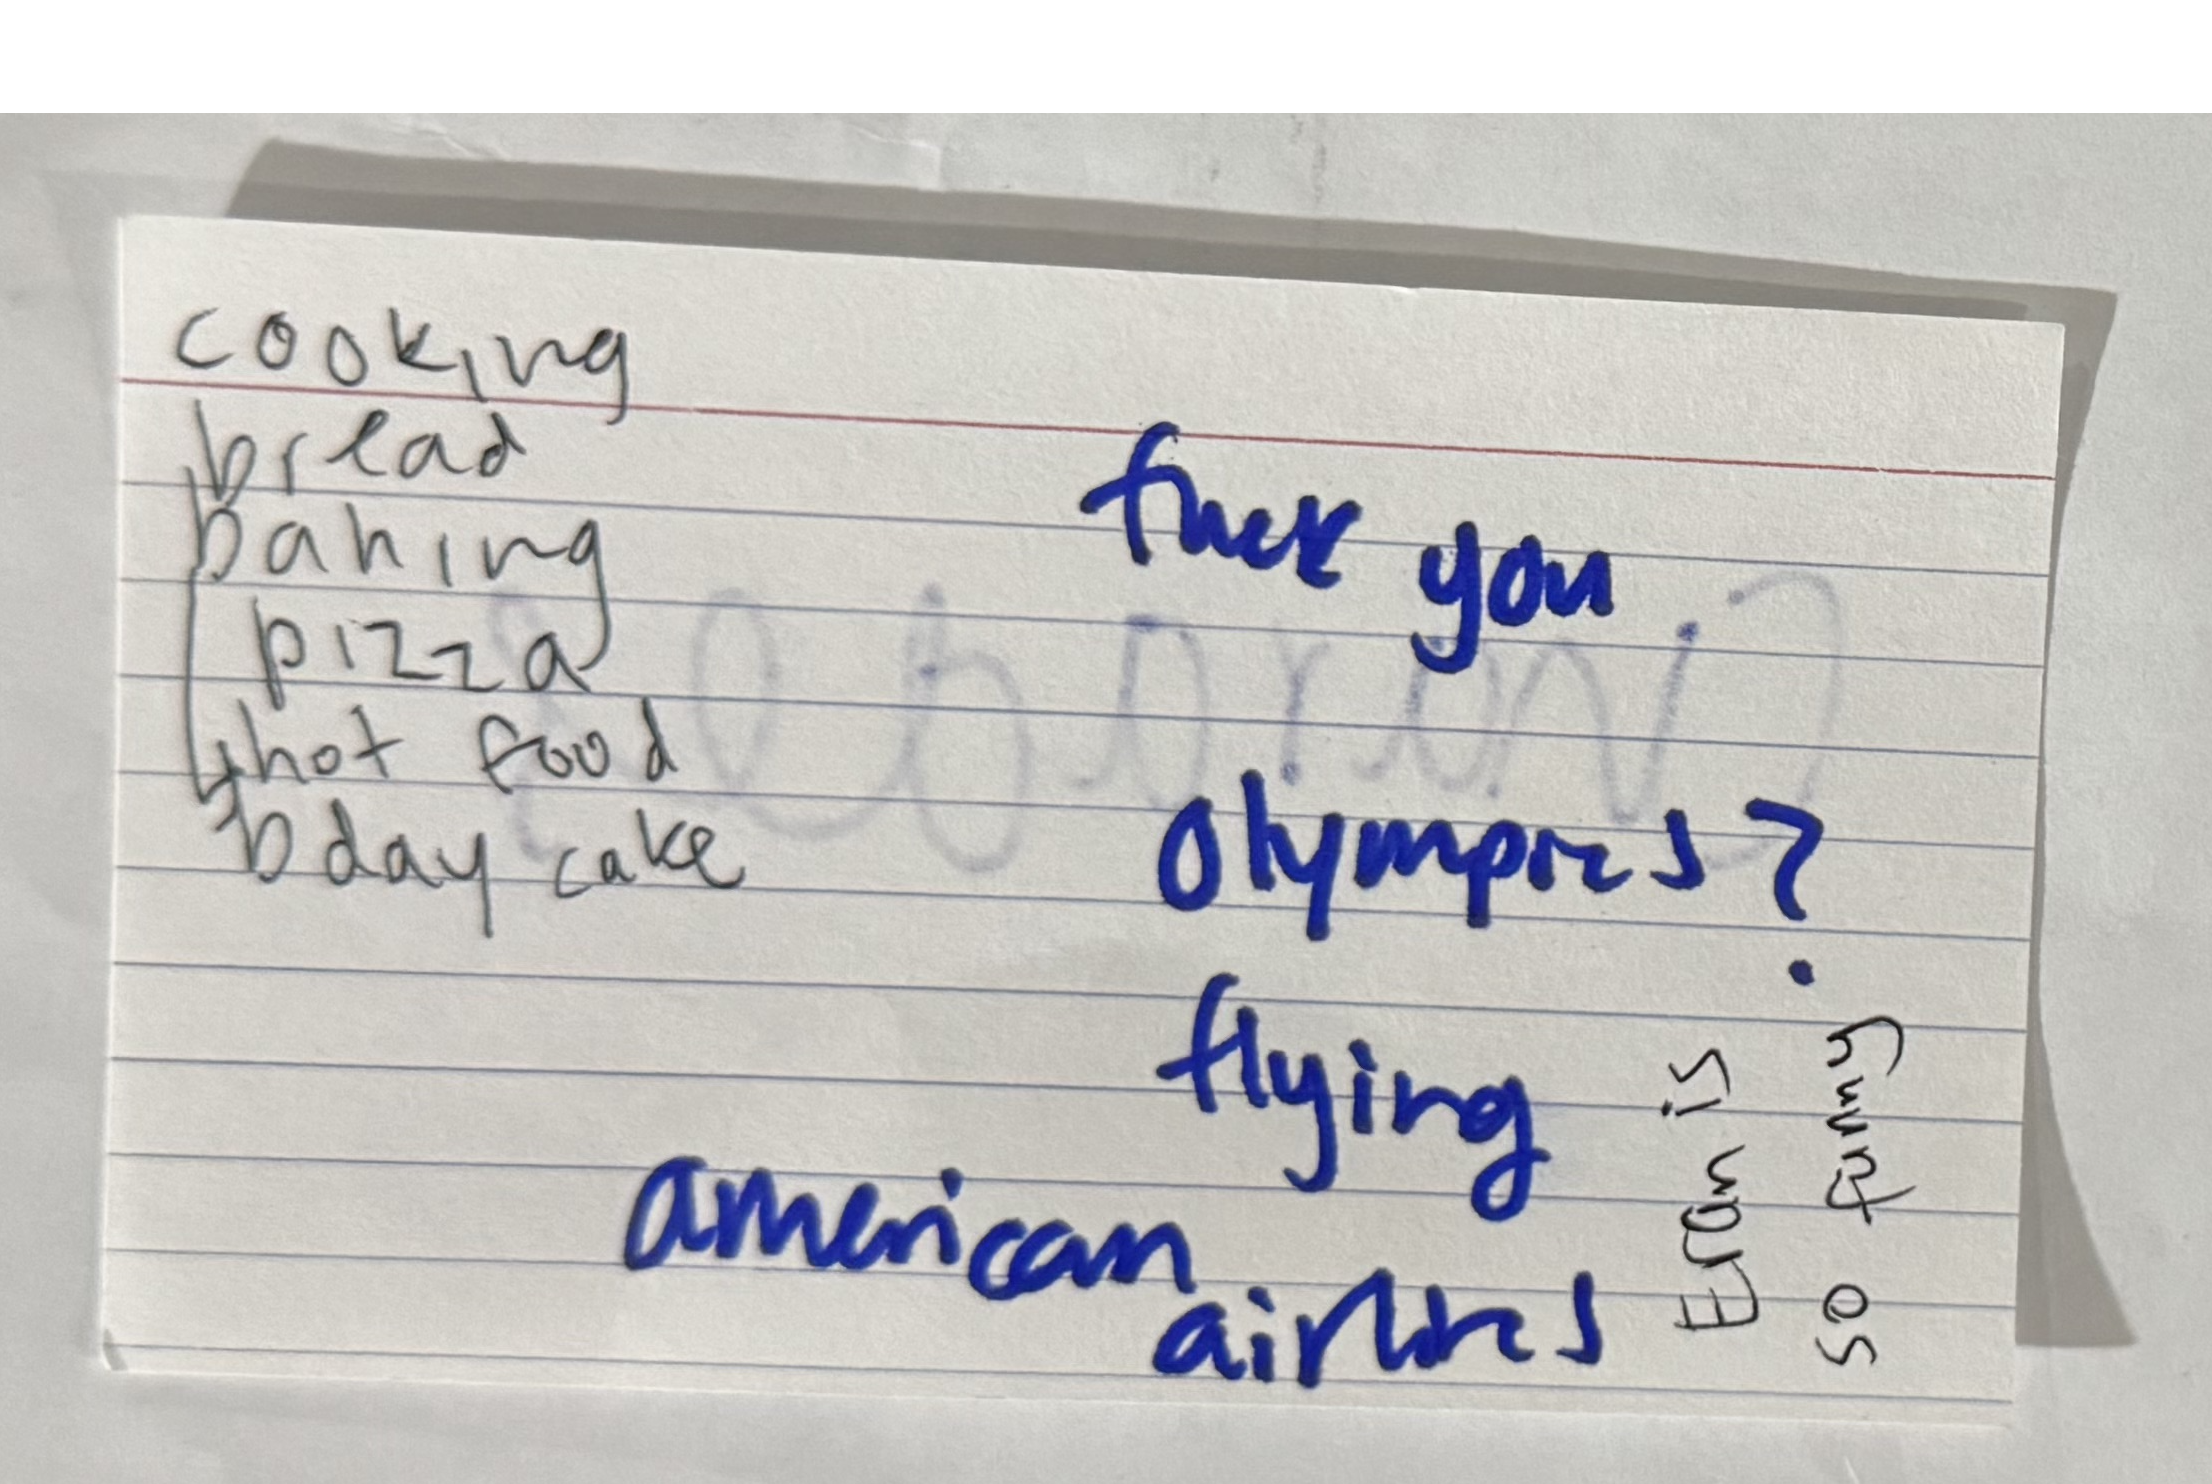 cooking
bread
baking
pizza
hot food
bday cake
fuck you
Olympics?
flying
american
airlines
Eran is
so funny